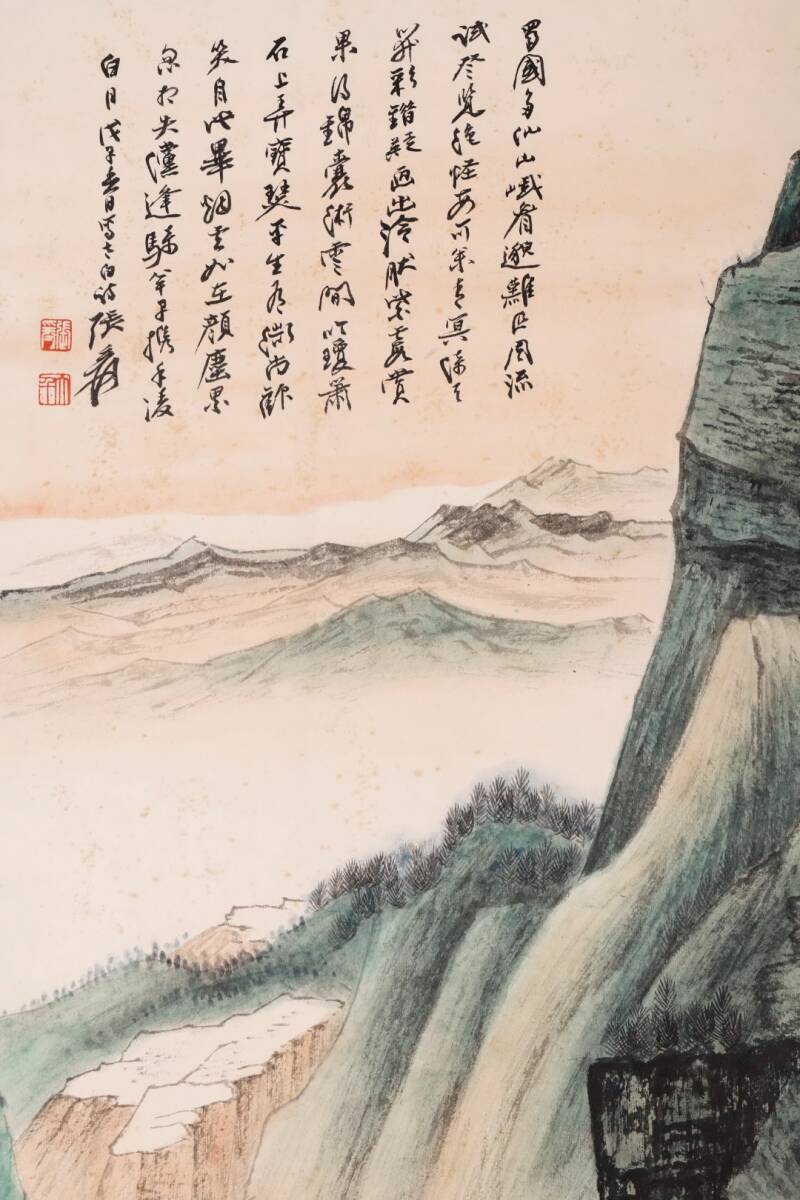 蜀國多仙山峨眉邈難匹周流
試登覽絕怪安可悉青冥倚天
開彩錯疑畫出泠然紫霞賞
果得錦囊術雲間吟瓊簫
石上弄寶瑟平生有微尚歡
笑自此畢烟容如在顏塵累
忽相失儻逢騎羊子攜手凌
白日 戊子春日寫太白詩 張爰
張爰
大千